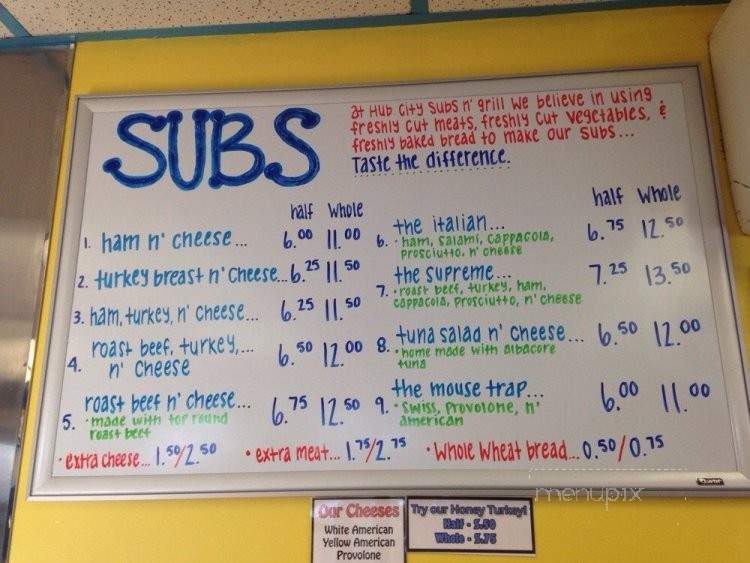 SUBS
at Hub City Subs n' grill we believe in using
freshly cut meats, freshly cut vegetables, &
freshly baked bread to make our subs...
Taste the difference.
half Whole
1. ham n' cheese... 6.00 11.00
2. turkey breast n' cheese... 6.25 11.50
3. ham, turkey, n' cheese... 6.25 11.50
4. roast beef, turkey,... 6.50 12.00
n' cheese
5. roast beef n' cheese... 6.75 12.50
• made with top round
roast beef
half Whole
6. the italian... 6.75 12.50
• ham, salami, cappacola,
prosciutto, n' cheese
7. the supreme... 7.25 13.50
• roast beef, turkey, ham,
cappacola, prosciutto, n' cheese
8. tuna salad n' cheese... 6.50 12.00
• home made with albacore
tuna
9. the mouse trap... 6.00 11.00
• swiss, provolone, n'
american
• extra cheese... 1.50/2.50 • extra meat... 1.75/2.75 • Whole Wheat bread... 0.50/0.75
menupix
Our Cheeses
White American
Yellow American
Provolone
Try our Honey Turkey!
Half - 5.50
Whole - 5.75